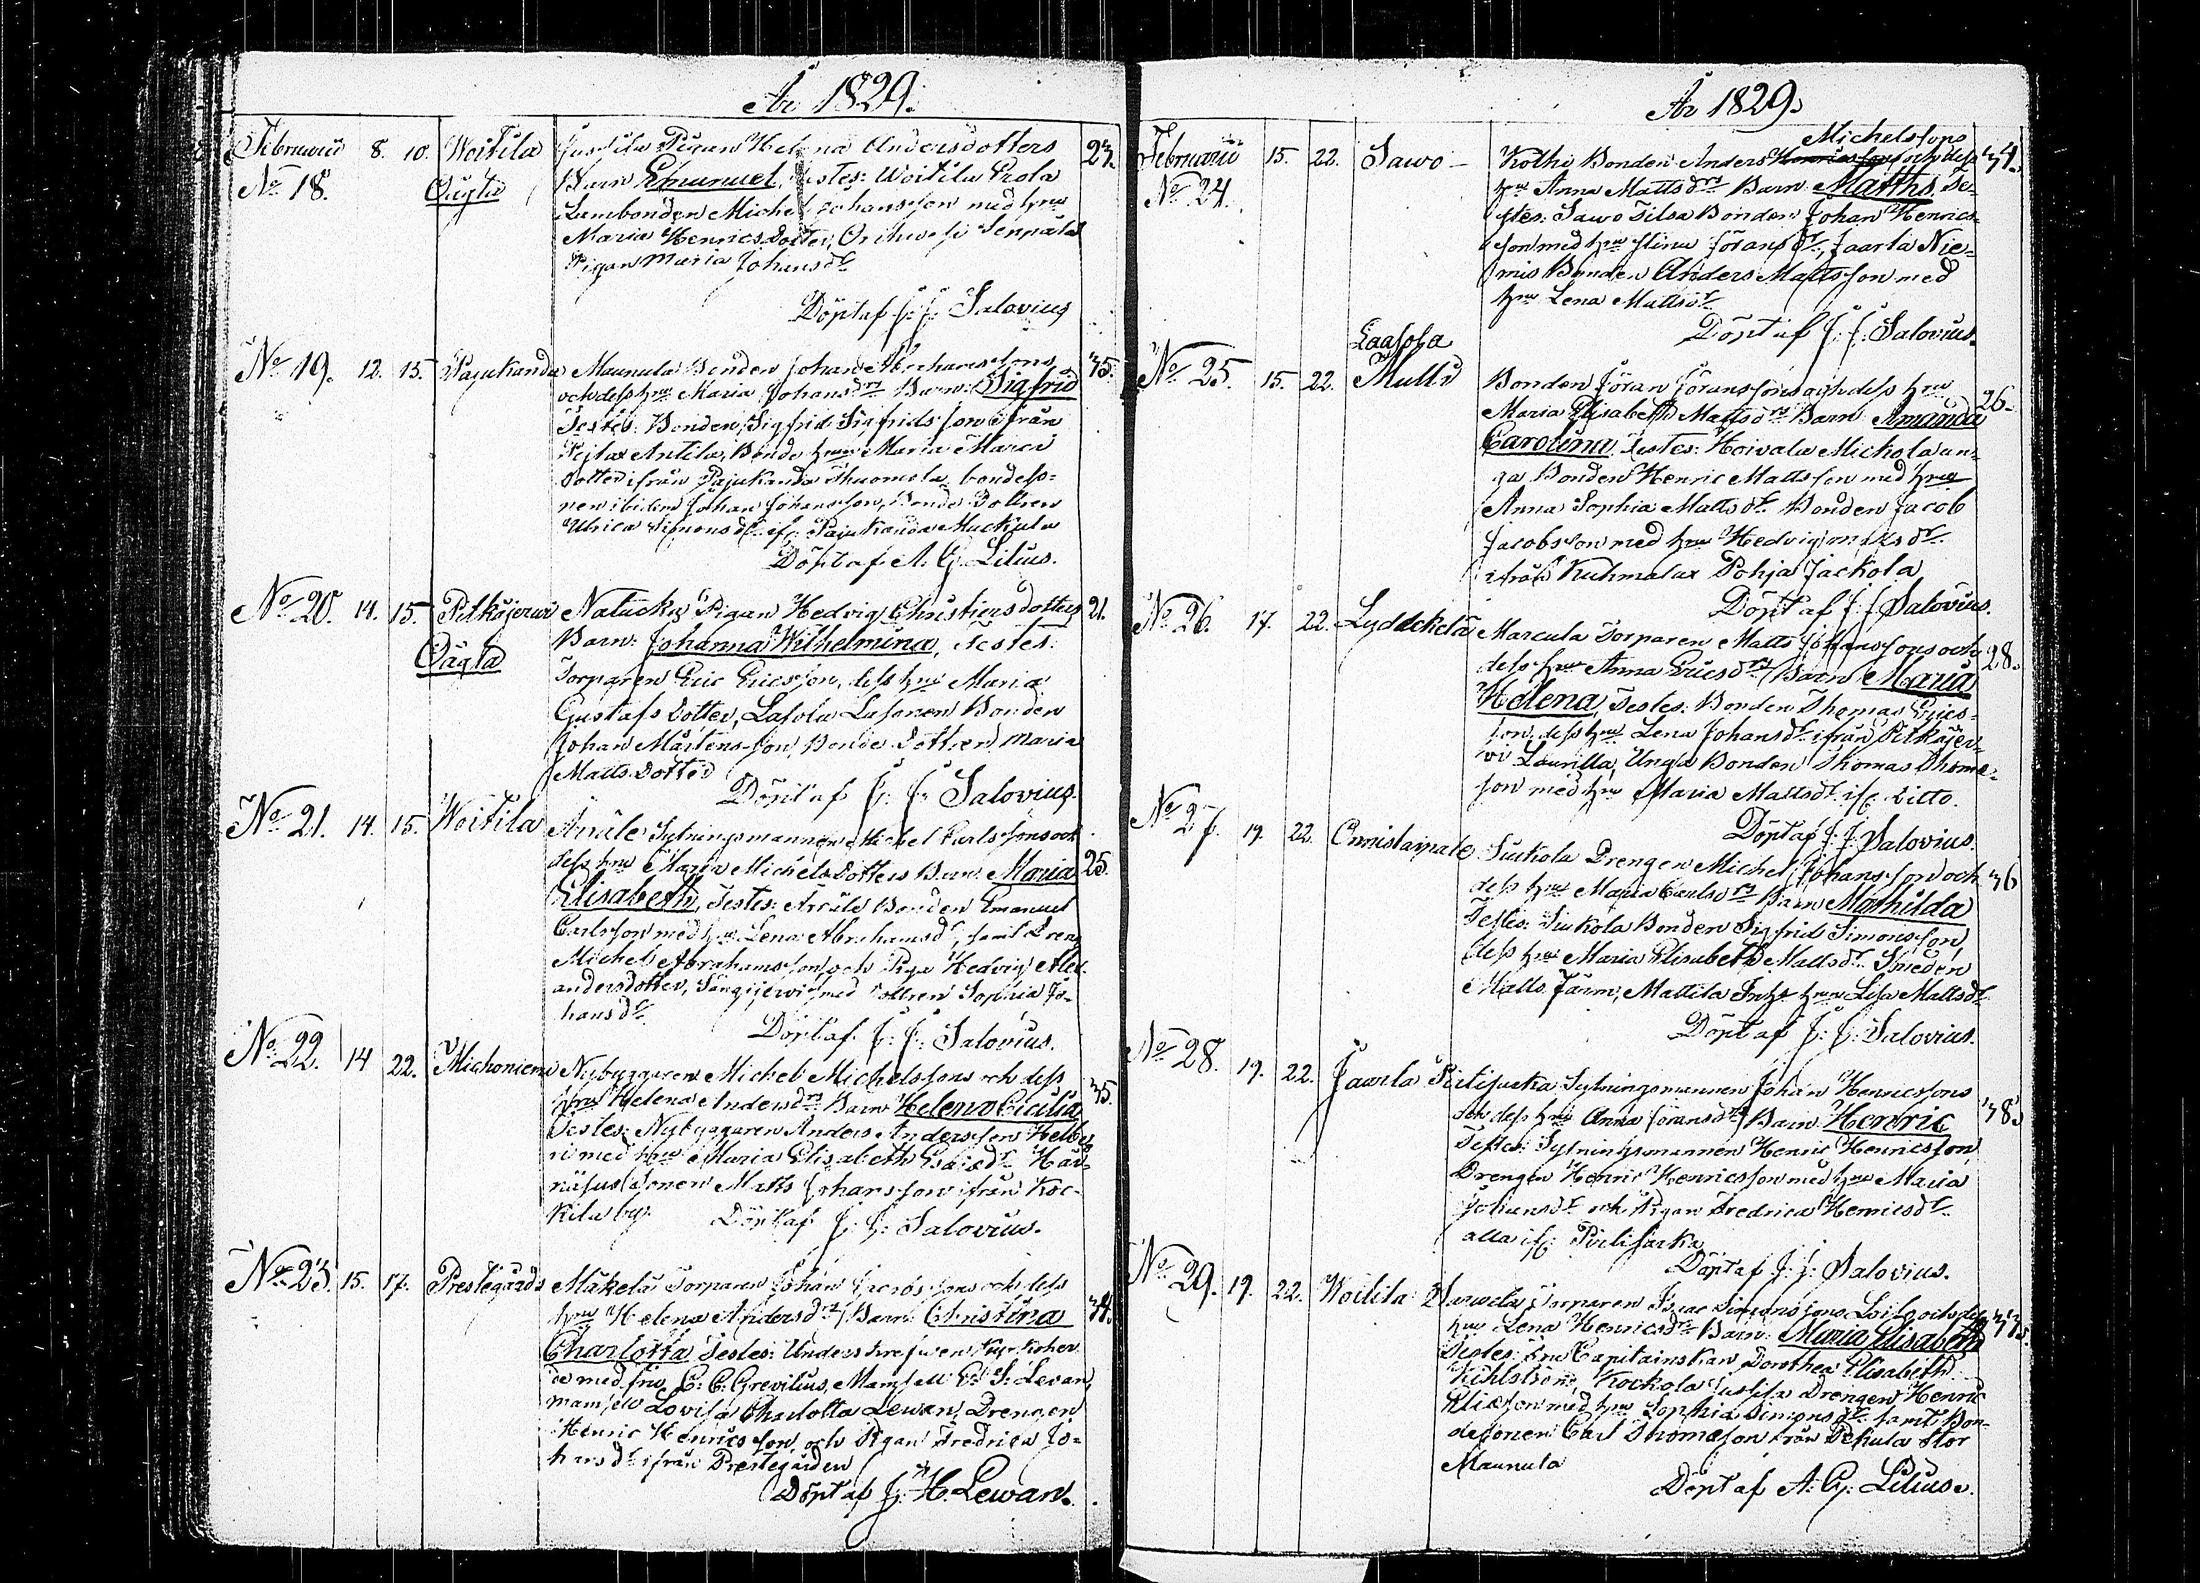 År 1829.
Februarii 8. 10. Woitila Jussila Pigan Helena Andersdotters 27.
No 18. Oägta Barn Emanuel, Testes: Woitila Prola
Bonden Michel Johansson med hru
Maria Henricsdotter, Orihwesi Seppälä
Pigan Maria Johansdr
Döpt af J: J: Salovius
No 19. 12. 15. Pajukanda Maunula Bonden Johan Abrahamssons 35.
och dess hru Maria Johansdrs Barn: Sigfrid
Testes: Bonden Sigfrid Sigfridsson ifrån
Antila, Bonde hrun Maria
dotter ifrån Pajukanda Thuomola, bondesso-
nen ibidem Johan Johansson, Bonde Dottren
Ulrica Simonsdr ifr: Pajukanda Mackula
Döpt af A. G. Lilius.
No 20. 14. 15. Pitkäjerwi Natucka Pigan Hedvig Christiersdotters 21.
Oägta Barn: Johanna Wilhelmina, Testes:
Torparen Eric Ericsson, dess hru Maria
Gustafsdotter, Lasola Lasonen Bonden
Johan Mårtensson, Bonde Dottren Maria
Matts Dotter
Döpt af J: J: Salovius.
No 21. 14. 15. Woitila Anäle Sytningsmannen Michel Karlssons och
dess hru Maria Michelsdotters Barn: Maria 25.
Elisabeth, Testes: Anäle Bonden Emanuel
Carlsson med hru Lena Abrahamsdr, samt Dreng
Michel Abrahamsson, och Piga Hedvig Alex-
andersdotter, Sängijerwi, med dottren Sophia Jo-
hansdr
Döpt af J: J: Salovius.
No 22. 14 22. Michoniemi Nybyggaren Michel Michelssons och dess
hrus Helena Andersdrs Barn Helena Cicilia 35.
Testes: Nybyggaren Anders Andersson
med hru Maria Elisabeth Esaiædr
Sonen Matts Johansson ifrån Koc-
kila by. Döpt af J: J: Salovius.
No 23. 15. 17. Prestegårds Mäkelä Torparen Johan Jacobssons och dess
hru Helena Andersdrs Barn: Christina 34.
Charlotta, Testes: Underskrefwen Kyrkoher-
de med fru C: C: Grevilius, Mamsell E: S: Lewan,
mamsell Lovisa Charlotta Lewan, Drengen
Henric Henricsson, och Pigan Fredrica Jo-
hansdr ifrån Prestegården
Döpt af J: H. Lewan.
År 1829.
Michelssons
Februarii 15. 22. Sawo Kothi Bonden Anders Henricssons och dess 31.
No 24. hru Anna Mattsdrs Barn: Matths, Te-
stes: Sawo Tilsa Bonden Johan Henrics-
son med hru Stina Göransdr, Jaarla Nie-
mis Bonden Anders Mattsson med
hru Lena Mattsdr
Döpt af J: J: Salovius.
Laasola
No 25. 15. 22. Mulli Bonden Jöran Jöranssons och dess hru
Maria Elisabeth Mattsdrs Barn: Amanda 26.
Carolina, Testes: Hoivala Mickola un-
ga Bonden Henric Mattsson med hru
Anna Sophia Mattsdr, Bonden Jacob
Jacobsson med hru Hedvig
ifrån Kuhmalax Pohja Jackola
Döpt af J: J: Salovius.
No 26. 17. 22. Lyddekelä Marcula Torparen Matts Johanssons och
dess hru Anna Ericsdrs Barn Maria 28.
Helena, Testes: Bonden Thomas Erics-
son, dess hru Lena Johansdr ifrån Pitkäjer-
vi Laurilla, Unga Bonden Thomas Thomæ-
son med hru Maria Mattsdr ifr: ditto.
Döpt af J: J: Salovius.
No 27. 19. 22. Onnistaipale Suckola Drengen Michel Johanssons och 36
dess hru Maria Carlsdrs Barn Mathilda
Testes: Suckola Bonden Sigfrid Simonsson,
dess hru Maria Elisabeth Mattsdr, Smeden
Matts Järn, Mattila Inhs hru Lisa Mattsdr
Döpt af J: J: Salovius.
No 28. 19. 22. Jaarla Pirtisarka Sytningsmannen Johan Henricssons
och dess hru Anna Göransdrs Barn: Henric 38.
Testes: Sytningsmannen Henric Henricsson,
Drengen Henric Henricsson med hru Maria
Johansdr och Pigan Fredrica Henricsdr
alla ifr: Pirtisarka
Döpt af J: J: Salovius.
No 29. 19. 22. Woitila Torparen Isaac Simonssons och dess
hru Lena Henricsdrs Barn: Maria Elisabeth 33.
Testes: Fru Capitainskan Dorothea Elisabeth
Kihlström, Kockola Jussila Drengen Henric
Eliæson med hru Sophia Simonsdr samt Bon-
desonen Carl Thomæson från Pekula Stor
Maunula
Döpt af A: G: Lilius.